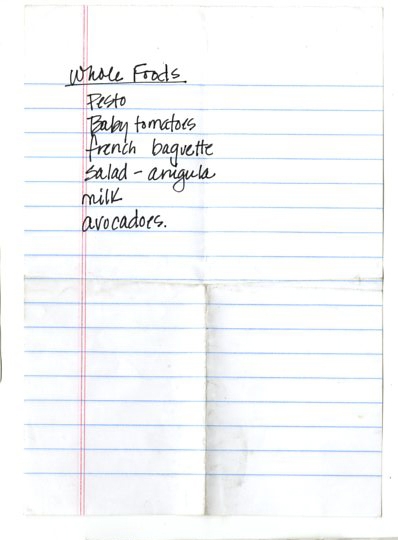 Whole Foods
Pesto
Baby tomatoes
french baguette
salad - arugula
milk
avocadoes.